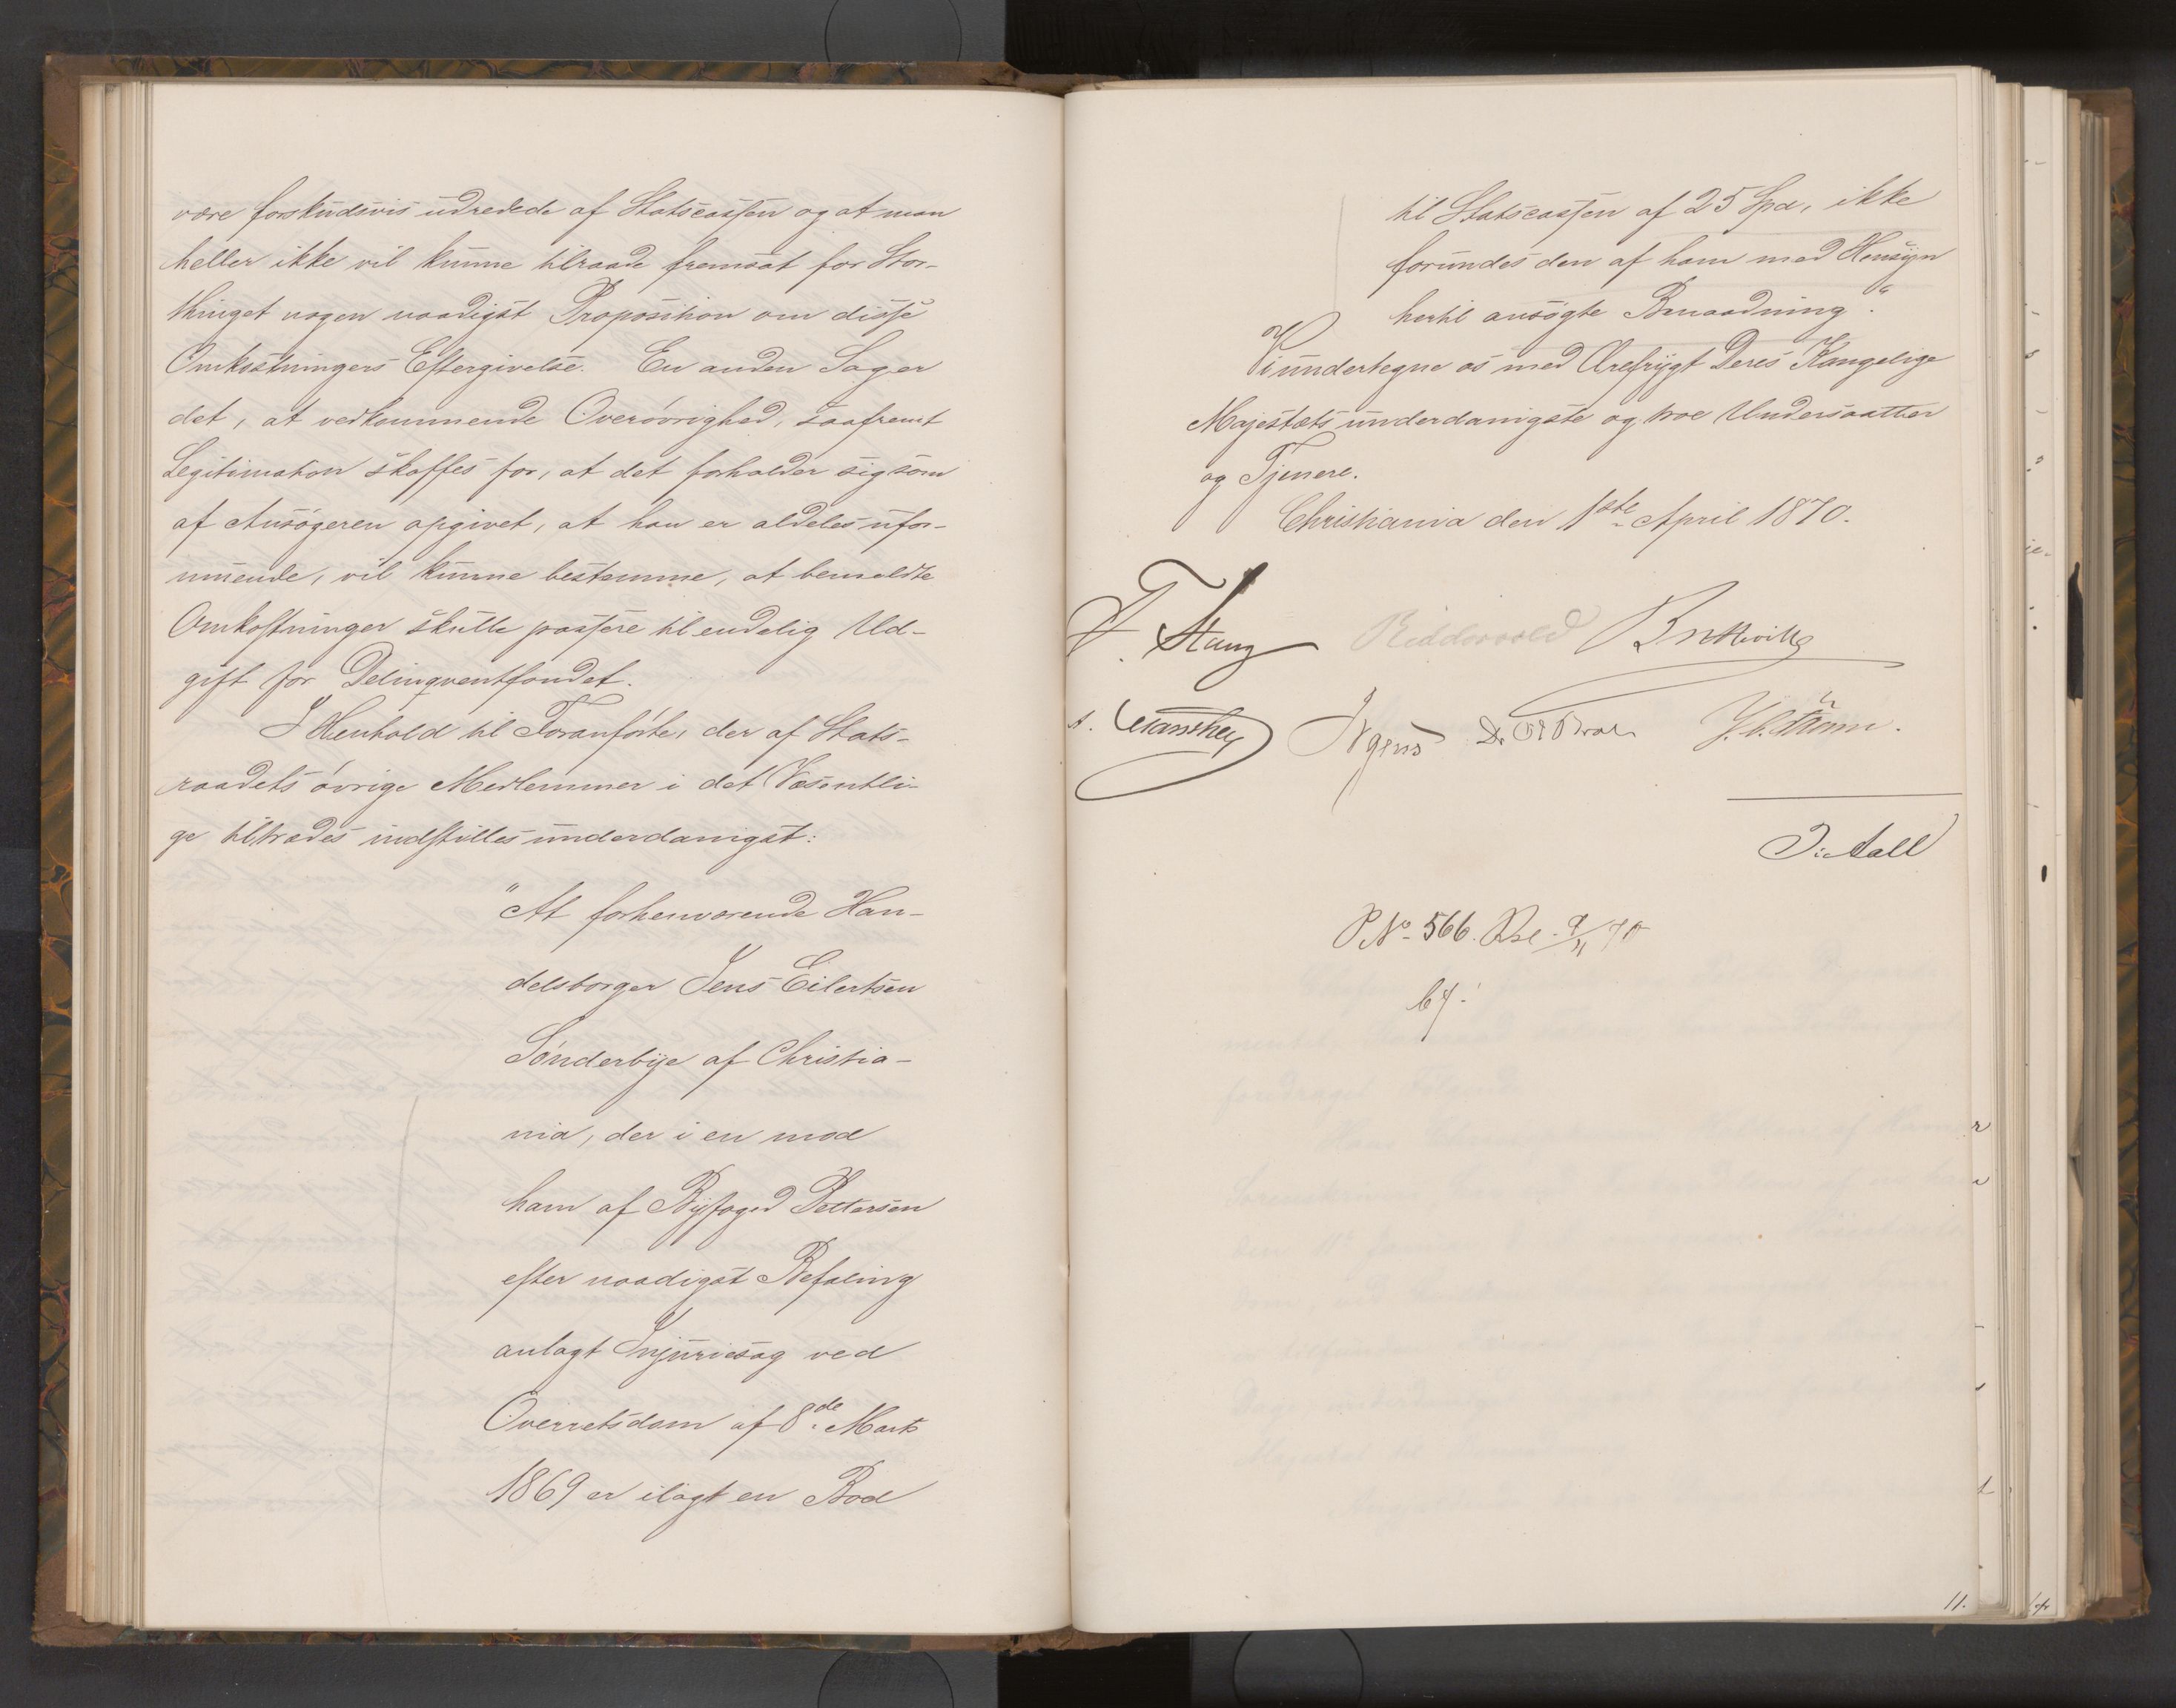 være forskudsvis udredede af Statscassen og at man
heller ikke vil kunne tilraade fremsat for Stor-
thinget nogen naadigst Proposition om disse
Omkostningers Eftergivelse. En anden Sag er
det, at vedkommende Overøvrighed, saafremt
Legitimation skaffes for, at det forholder sig som
af Ansøgeren opgivet, at han er aldeles ufor-
muende, vil kunne bestemme, at bemeldte
Omkostninger skulle passere til endelig Ud-
gift for Delinqventfondet.
I Henhold til Foranførte, der af Stats-
raadets øvrige Medlemmer i det Væsentli-
ge tiltrædes indstilles underdanigst:
"At forhenværende Han-
delsborger Jens Eilertsen
Sønderbye af Christia-
nia, der i en mod
ham af Byfoged Pettersen
efter naadigst Befaling
anlagt Injuriesag ved
Overretsdom af 8de Marts
1869 er ilagt en Bod
til Statscassen af 25 Spd, ikke
forundes den af ham med Hensyn
hertil ansøgte Benaadning".
Vi undertegne os med Ærefrygt Deres Kongelige
Majestæts underdanigste og troe Undersaatter
og Tjenere.
Christiania den 1ste April 1870.
F. Stang Riddervold Bretteville
Manthey Irgens Dr O J Broch J. C. Falsen.
J. Aall
P. No 566. Rse. 9/4 70
11.